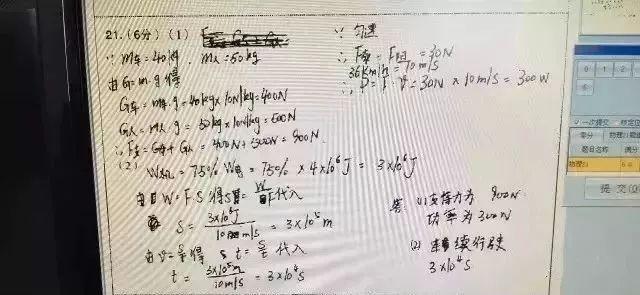 21.(6分)(1)
∵ m车=40kg , m人=50kg
由G=m·g得
G车=m车·g=40kg×10N/kg=400N
G人=m人·g=50kg×10N/kg=500N
∴ F支=G车+G人=400N+500N=900N
(2)
W机=75% W电=75% × 4×10⁶J = 3×10⁶J
由 W=F·S 得S= 代入
S= 3×10⁶J = 3×10⁵m
由 v= 得 t= 代入
t= 3×10⁵m / 10m/s =3×10⁴s
∵ 匀速
∴ F牵=F阻=30N
36km/h=10m/s
∴ P=F·v=30N×10m/s=300W
答:(1)支持力为 900N
功率为300W
(2) 续行驶
3×10⁴s
0 1 2
一次提交
题目名称 满分
物理21
提交